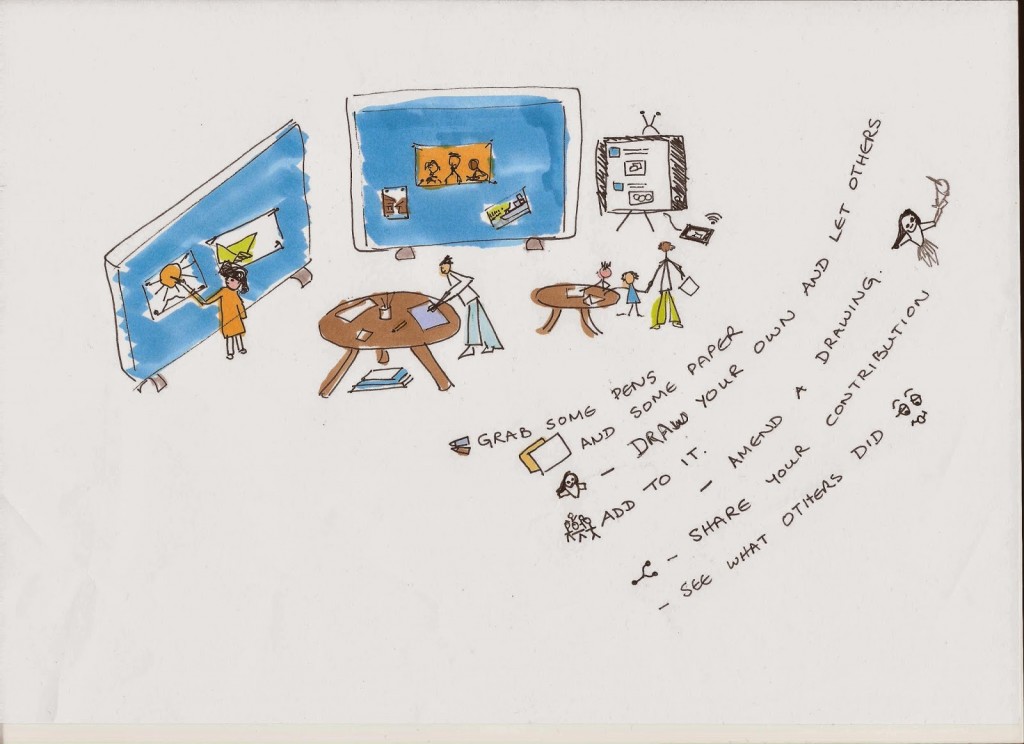 GRAB SOME PENS
AND SOME PAPER
- DRAW YOUR OWN AND LET OTHERS
ADD TO IT.
- AMEND A DRAWING.
- SHARE YOUR CONTRIBUTION
- SEE WHAT OTHERS DID